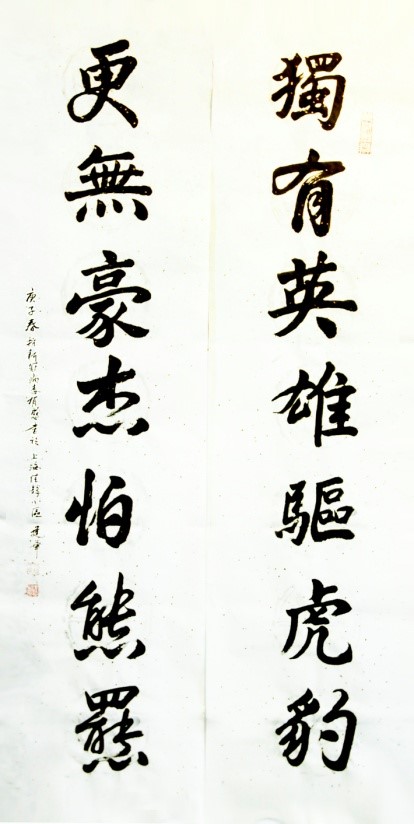 獨有英雄驅虎豹
更無豪杰怕熊羆
庚子春 上海佳 小區